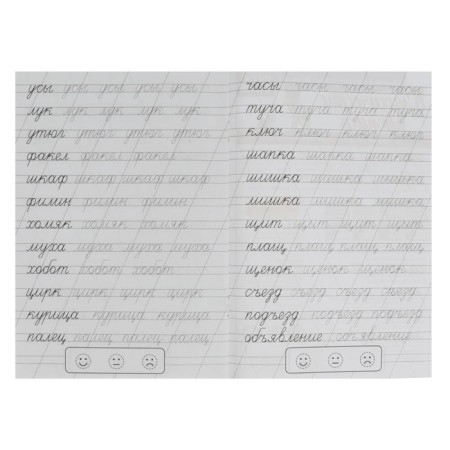 усы усы усы усы усы
лук лук лук лук лук
утюг утюг утюг утюг
факел факел факел
шкаф шкаф шкаф шкаф
филин филин филин
хомяк хомяк хомяк
муха муха муха муха
хобот хобот хобот
цирк цирк цирк цирк
курица курица курица
палец палец палец палец
часы часы часы часы
туча туча туча туча
ключ ключ ключ ключ
шапка шапка шапка
шишка шишка шишка
мишка мишка мишка
щит щит щит щит
плащ плащ плащ плащ
щенок щенок щенок
съезд съезд съезд съезд
подъезд подъезд подъезд
объявление объявление